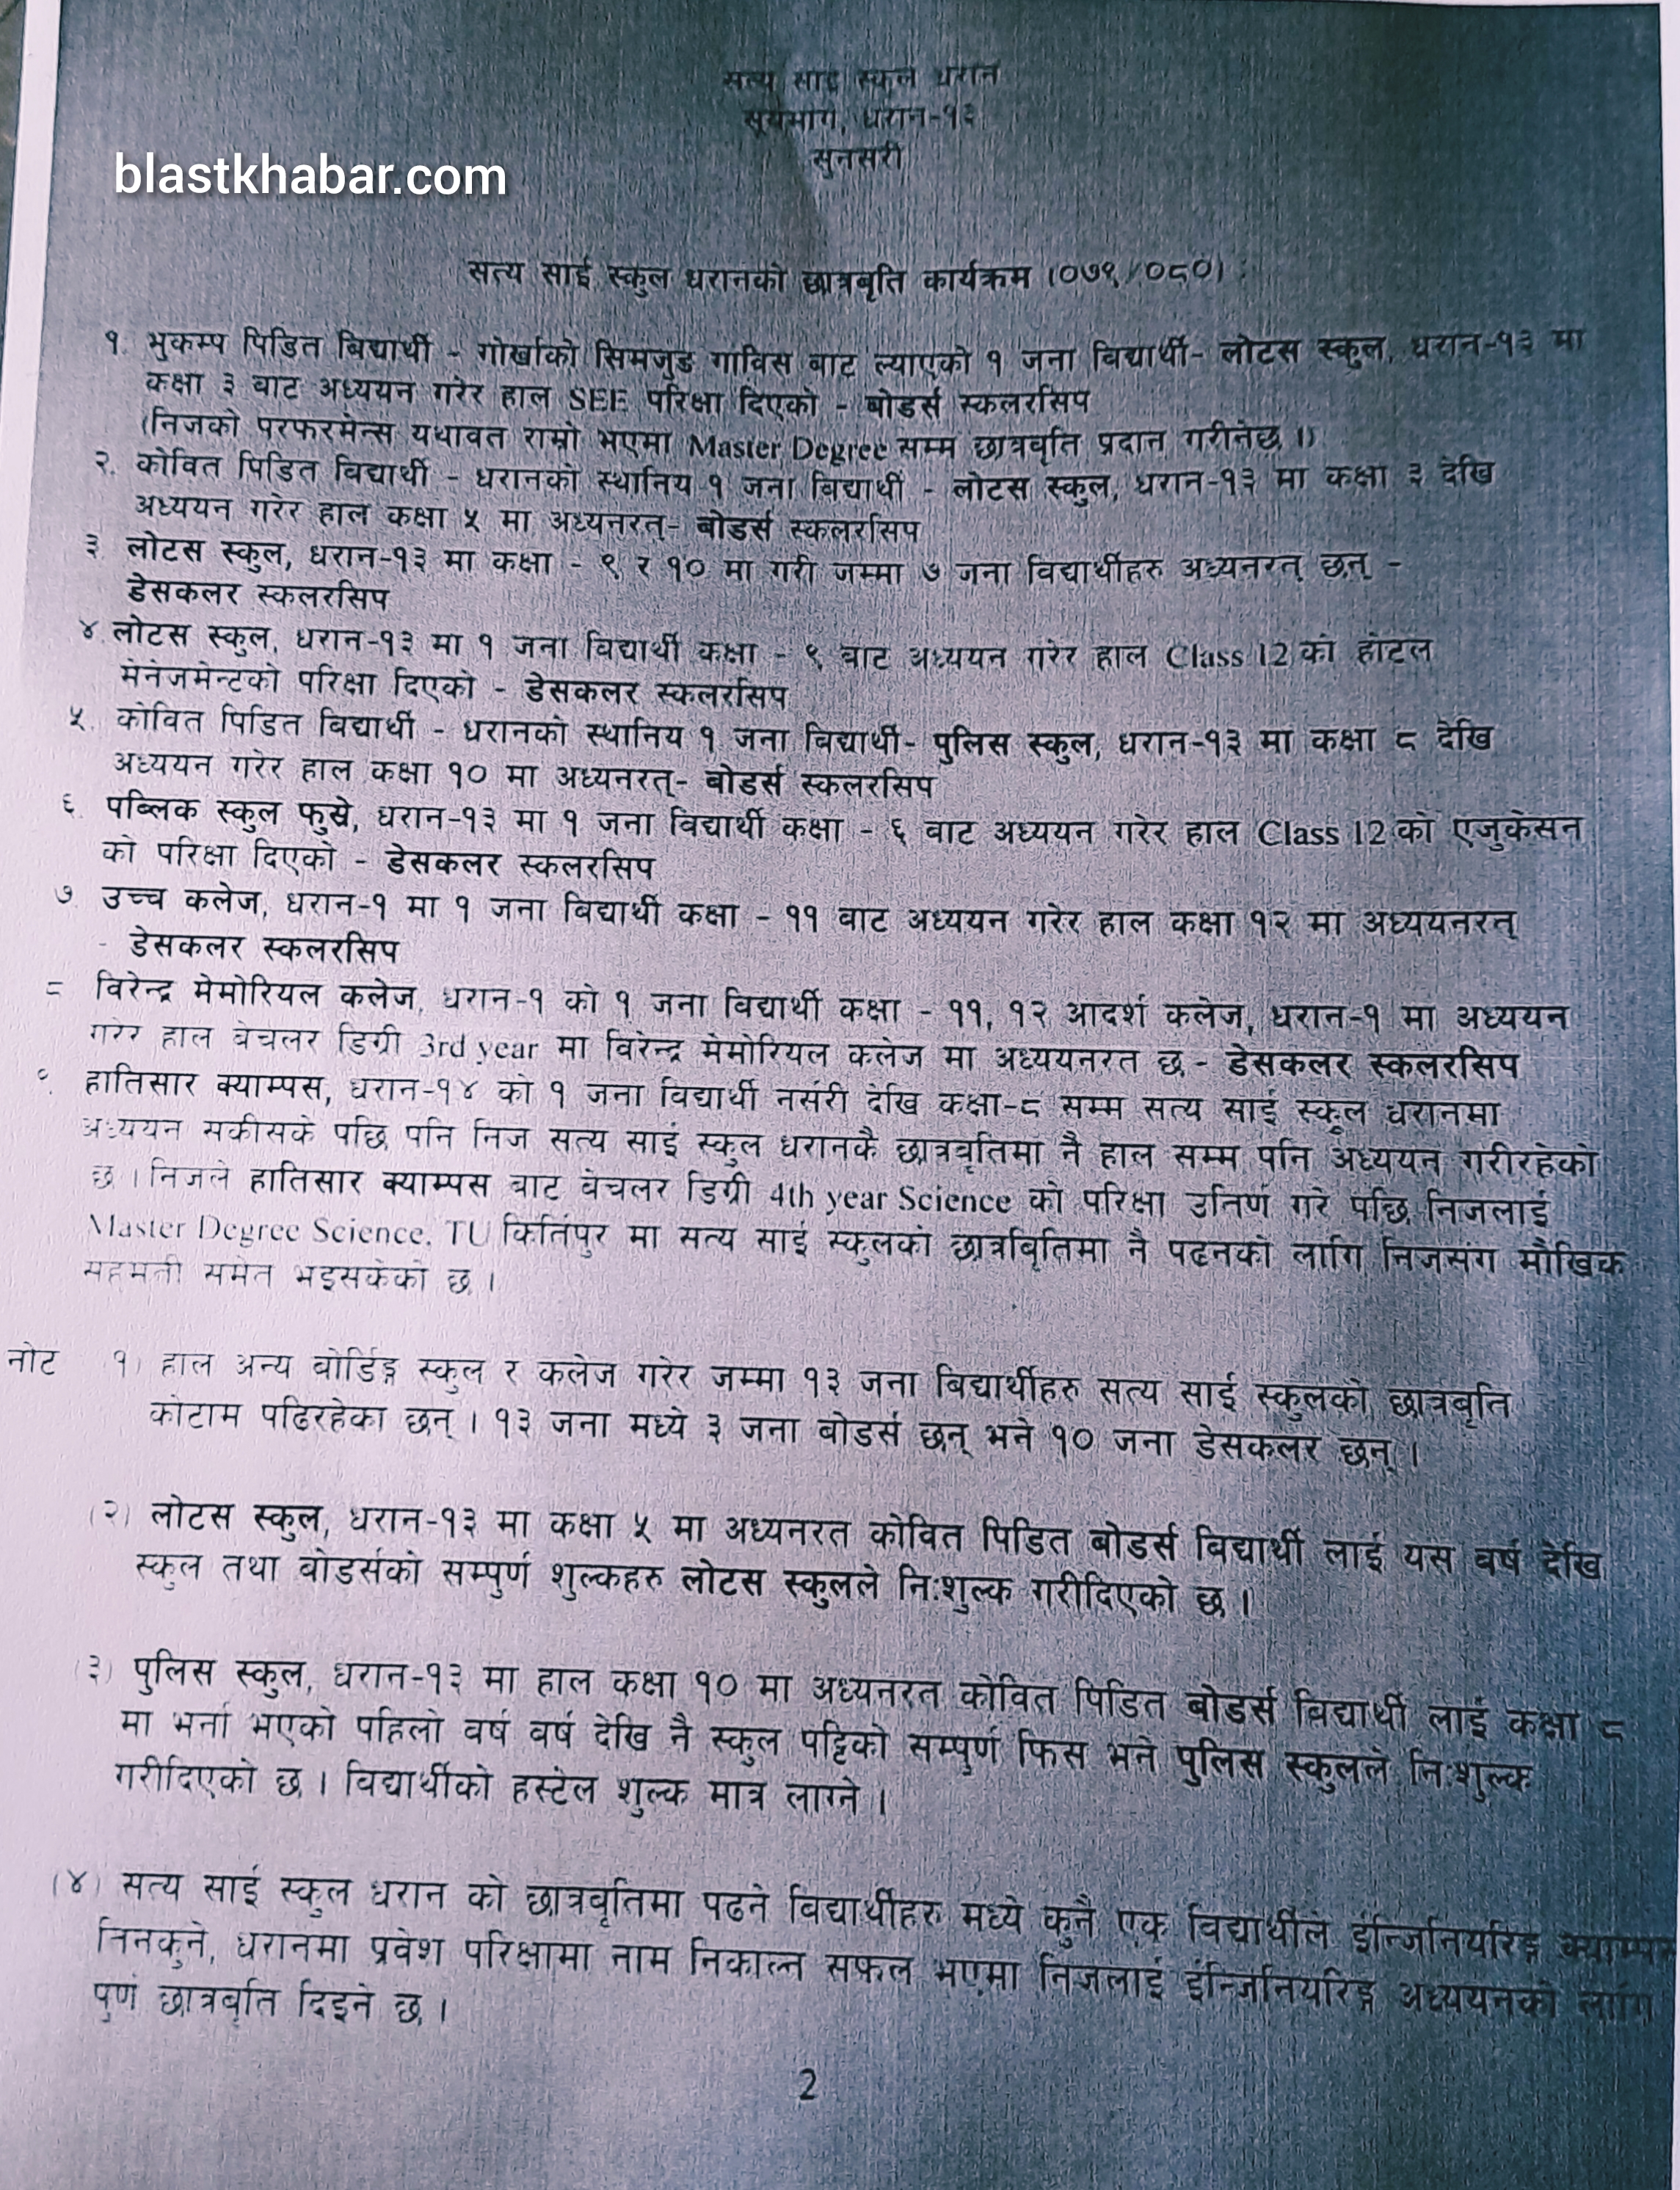 सत्य साई स्कुल धरान
सूर्यमार्ग, धरान-१३
सुनसरी
blastkhabar.com
सत्य साई स्कुल धरानको छात्रबृति कार्यक्रम (०७९/०८०) :
१. भुकम्प पिडित बिद्यार्थी - गोर्खाको सिमजुङ गाविस बाट ल्याएको १ जना विद्यार्थी- लोटस स्कुल, धरान-१३ मा
कक्षा ३ बाट अध्ययन गरेर हाल SEE परिक्षा दिएको - बोडर्स स्कलरसिप
(निजको परफरमेन्स यथावत राम्रो भएमा Master Degree सम्म छात्रबृति प्रदान गरीनेछ ।)
२. कोवित पिडित विद्यार्थी - धरानको स्थानिय १ जना बिद्यार्थी - लोटस स्कुल, धरान-१३ मा कक्षा ३ देखि
अध्ययन गरेर हाल कक्षा ५ मा अध्यनरत्- बोडर्स स्कलरसिप
३. लोटस स्कुल, धरान-१३ मा कक्षा - ९ र १० मा गरी जम्मा ७ जना विद्यार्थीहरु अध्यनरत् छन् -
डेसकलर स्कलरसिप
४. लोटस स्कुल, धरान-१३ मा १ जना विद्यार्थी कक्षा - ९ बाट अध्ययन गरेर हाल Class 12 को होटल
मेनेजमेन्टको परिक्षा दिएको - डेसकलर स्कलरसिप
५. कोवित पिडित बिद्यार्थी - धरानको स्थानिय १ जना बिद्यार्थी- पुलिस स्कुल, धरान-१३ मा कक्षा ८ देखि
अध्ययन गरेर हाल कक्षा १० मा अध्यनरत्- बोडर्स स्कलरसिप
६. पब्लिक स्कुल फुस्रे, धरान-१३ मा १ जना विद्यार्थी कक्षा - ६ बाट अध्ययन गरेर हाल Class 12 को एजुकेसन
को परिक्षा दिएको - डेसकलर स्कलरसिप
७. उच्च कलेज, धरान-१ मा १ जना बिद्यार्थी कक्षा - ११ बाट अध्ययन गरेर हाल कक्षा १२ मा अध्ययनरत्
- डेसकलर स्कलरसिप
८ विरेन्द्र मेमोरियल कलेज, धरान-१ को १ जना विद्यार्थी कक्षा - ११, १२ आदर्श कलेज, धरान-१ मा अध्ययन
गरेर हाल बेचलर डिग्री 3rd year मा विरेन्द्र मेमोरियल कलेज मा अध्ययनरत छ - डेसकलर स्कलरसिप
९. हातिसार क्याम्पस, धरान-१४ को १ जना विद्यार्थी नर्सरी देखि कक्षा-८ सम्म सत्य साई स्कूल धरानमा
अध्ययन सकीसके पछि पनि निज सत्य साई स्कुल धरानकै छात्रबृतिमा नै हाल सम्म पनि अध्ययन गरीरहेको
छ । निजले हातिसार क्याम्पस बाट बेचलर डिग्री 4th year Science को परिक्षा उतिर्ण गरे पछि निजलाई
Master Degree Science, TU किर्तिपुर मा सत्य साई स्कुलको छात्रबितिमा नै पढनको लागि निजसंग मौखिक
सहमती समेत भइसकेको छ ।
नोट १) हाल अन्य बोर्डिङ्ग स्कुल र कलेज गरेर जम्मा १३ जना बिद्यार्थीहरु सत्य साई स्कुलको छात्रबृति
कोटाम पढिरहेका छन् । १३ जना मध्ये ३ जना बोडर्स छन् भने १० जना डेसकलर छन् ।
(२) लोटस स्कुल, धरान-१३ मा कक्षा ५ मा अध्यनरत कोवित पिडित बोडर्स विद्यार्थी लाई यस वर्ष देखि
स्कुल तथा बोडर्सको सम्पुर्ण शुल्कहरु लोटस स्कुलले नि:शुल्क गरीदिएको छ ।
(३) पुलिस स्कुल, धरान-१३ मा हाल कक्षा १० मा अध्यनरत कोवित पिडित बोडर्स विद्यार्थी लाई कक्षा ८
मा भर्ना भएको पहिलो वर्ष वर्ष देखि नै स्कुल पट्टिको सम्पुर्ण फिस भने पुलिस स्कुलले नि:शुल्क
गरीदिएको छ । विद्यार्थीको हस्टेल शुल्क मात्र लाग्ने ।
(४) सत्य साई स्कुल धरान को छात्रबृतिमा पढने विद्यार्थीहरु मध्ये कुनै एक विद्यार्थीले इन्जिनियरिङ्ग
तिनकुने, धरानमा प्रवेश परिक्षामा नाम निकाल्न सफल भएमा निजलाई इन्जिनियरिङ्ग अध्ययनको लागि
पुर्ण छात्रबृति दिइने छ ।
2